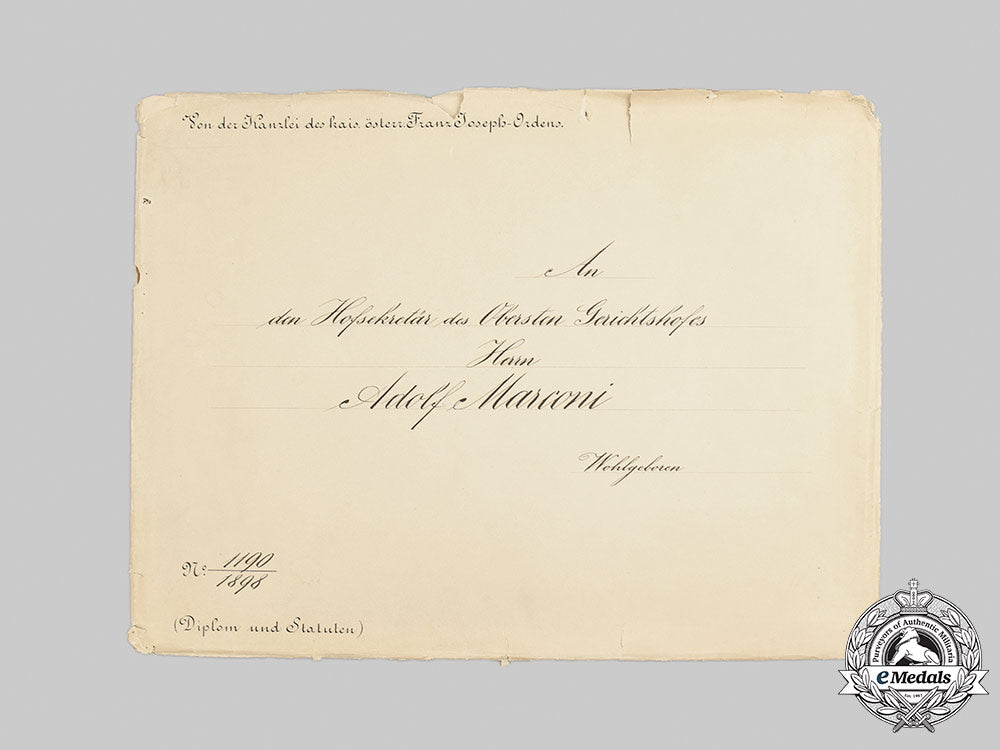 Von der Kanzlei des kais. österr. Franz Joseph-Ordens.
An
den Hofsekretär des Obersten Gerichtshofes
Herrn
Adolf Marconi
Wohlgeboren
No. 1190
1898
(Diplom und Statuten)
Purveyors of Authentic Militaria
eMedals
Est. 1967